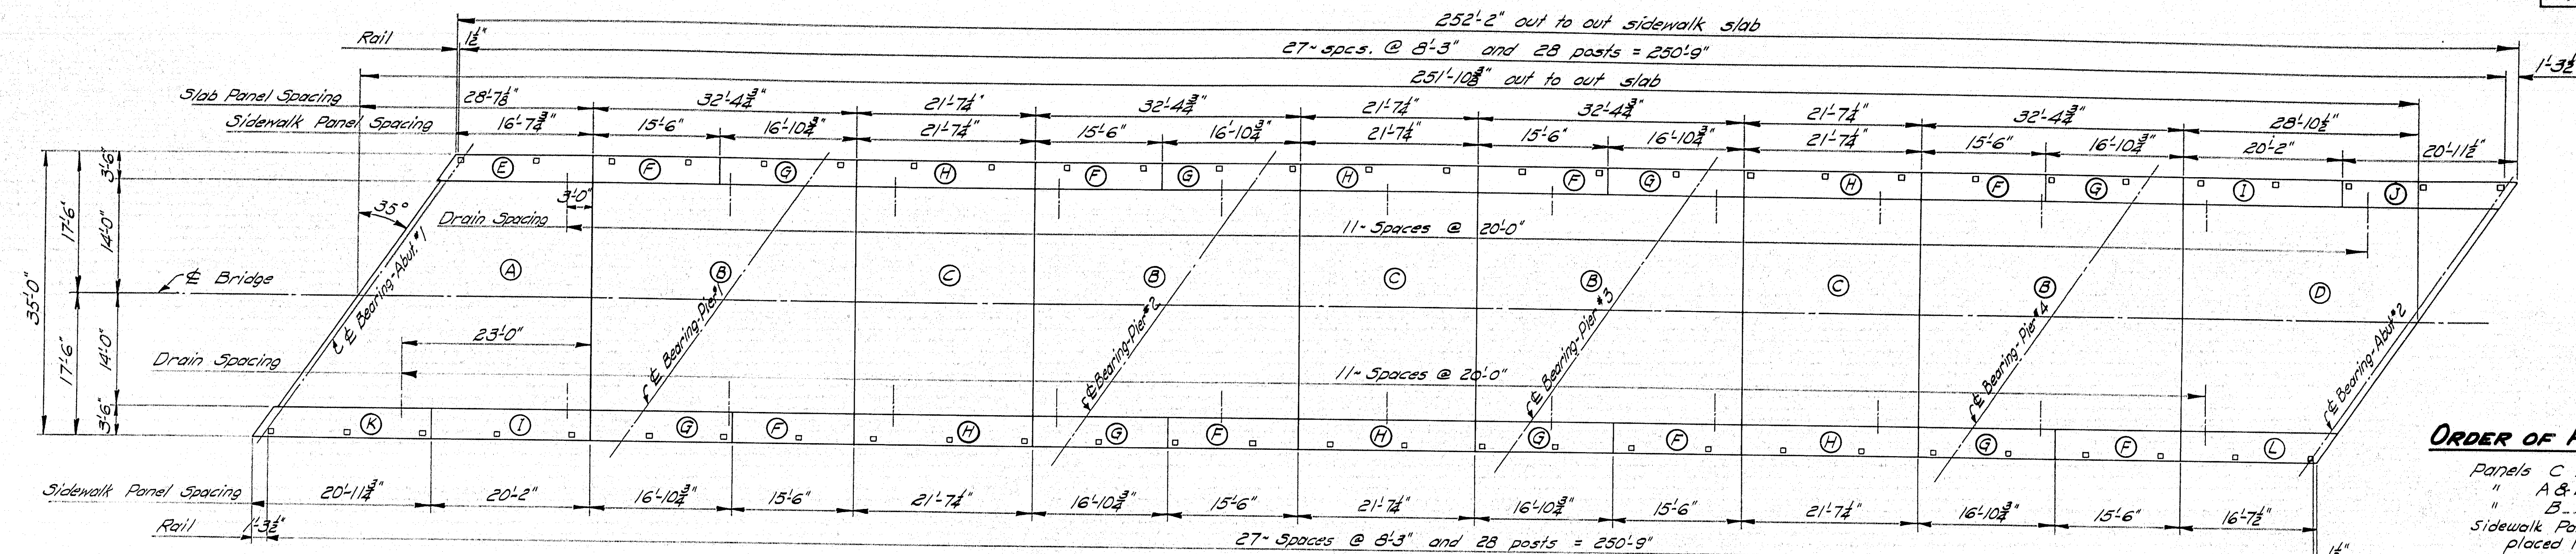 252'-2" out to out sidewalk slab
Rail 1½" 27~spcs. @ 8'-3" and 28 posts = 250'-9" 1'-3½"
251'-10⅜" out to out slab
Slab Panel Spacing 28'-7⅛" 32'-4¾" 21'-7¼" 32'-4¾" 21'-7¼" 32'-4¾" 21'-7¼" 32'-4¾" 28'-10½"
Sidewalk Panel Spacing 16'-7¾" 15'-6" 16'-10¾" 21'-7¼" 15'-6" 16'-10¾" 21'-7¼" 15'-6" 16'-10¾" 21'-7¼" 15'-6" 16'-10¾" 20'-2" 20'-11½"
3'-6" E F G H F G H F G H F G I J
35° 3'-0"
Drain Spacing 11~Spaces @ 20'-0"
35'-0" 17'-6" 14'-0"
℄ Bridge A B C B C B C B D
℄ Bearing-Abut. #1
℄ Bearing-Pier #1
℄ Bearing-Pier #2
℄ Bearing-Pier #3
℄ Bearing-Pier #4
℄ Bearing-Abut #2
17'-6" 14'-0" 23'-0"
Drain Spacing 11~Spaces @ 20'-0"
3'-6" K I G F H G F H G F H G F L
Sidewalk Panel Spacing 20'-11¾" 20'-2" 16'-10¾" 15'-6" 21'-7¼" 16'-10¾" 15'-6" 21'-7¼" 16'-10¾" 15'-6" 21'-7¼" 16'-10¾" 15'-6" 16'-7½"
Rail 1'-3½" 27~Spaces @ 8'-3" and 28 posts = 250'-9" 1½"
ORDER OF
Panels C
" A &
" B
Sidewalk
placed